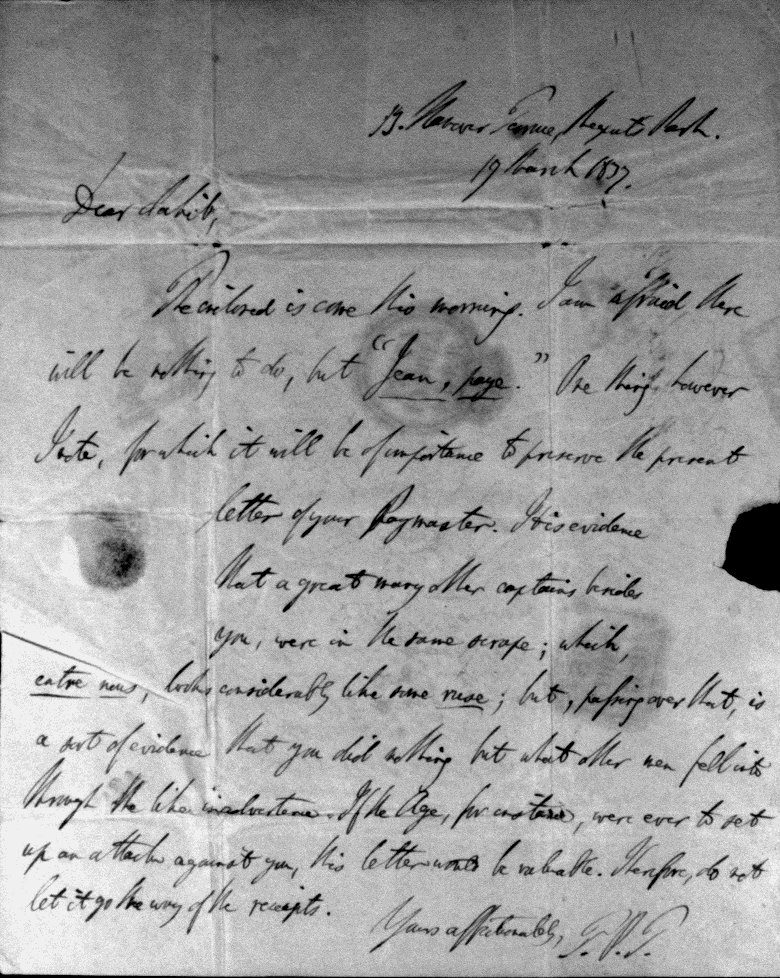 13. Hanover Terrace, Regents Park.
19 March 1837.
Dear Sahib,
The enclosed is come this morning. I am afraid there
will be nothing to do, but "Jean, paye." One thing however
I note, for which it will be of importance to preserve the present
letter of your Paymaster. It is evidence
that a great many other captains besides
you, were in the same scrape; which,
entre nous, looks considerably like some ruse; but, passing over that, is
a sort of evidence that you did nothing but what other men fell into
through the like inadvertence. If the Age, for instance, were ever to set
up an attack against you, this letter would be valuable. Therefore, do not
let it go the way of the receipts.
Yours affectionately,
T.P.T.